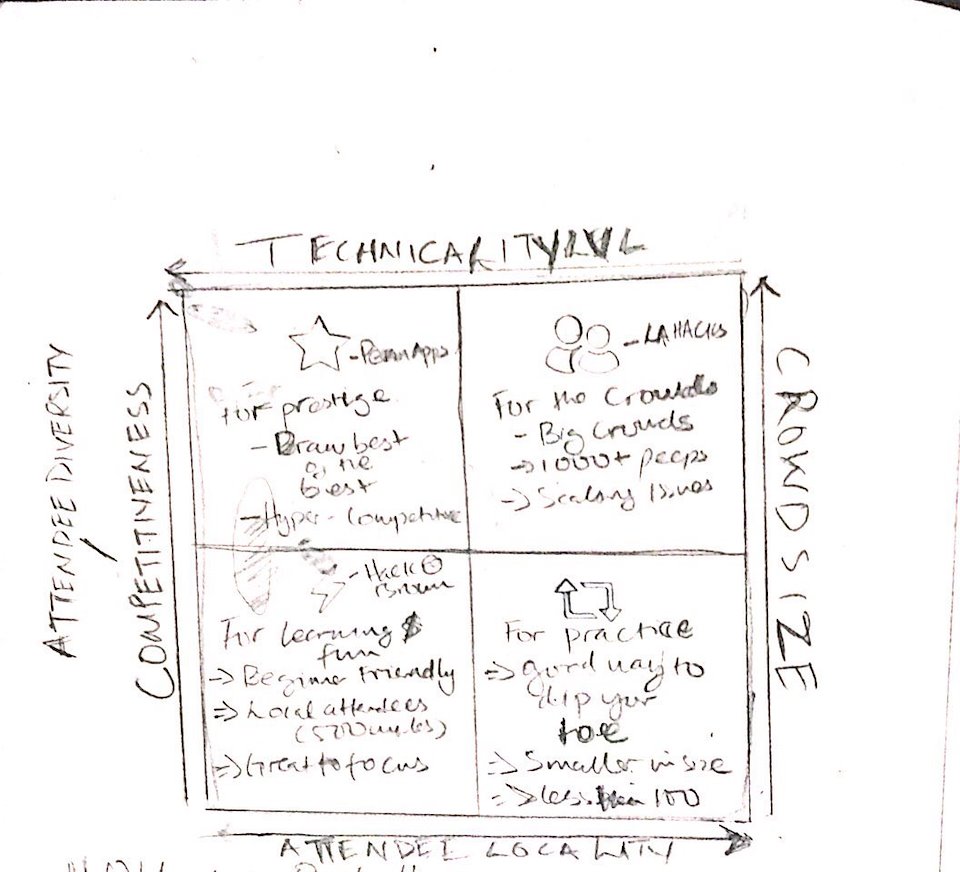 TECHNICALITY LVL
ATTENDEE DIVERSITY /
COMPETITIVENESS
CROWD SIZE
- PennApps
For prestige
- Draw best
o, the
best
- Hyper-Competitive
- LAHACKS
For the Crowds
- Big Crowds
→ 1000+ peeps
→ Scaling Issues
- Hack @
For learning &
fun
=> Beginner Friendly
=> Local attendees
=> Great to focus
For practice
=> Good way to
dip your
toe
=> Smaller in size
=> less than 100
ATTENDEE LOCALITY